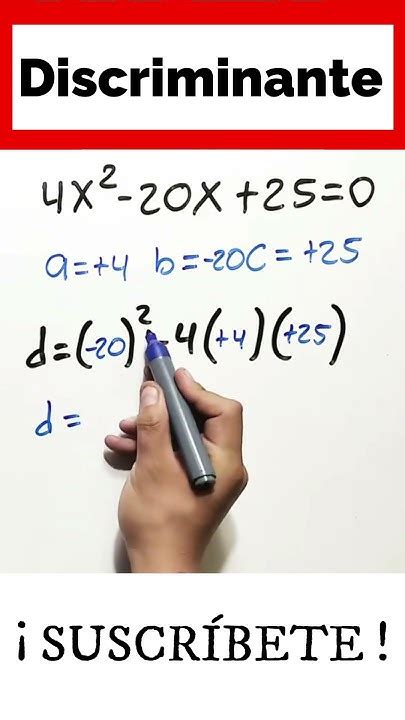 Discriminante
4x²-20x+25=0
a=+4 b=-20 C=+25
d=(-20)²-4(+4)(+25)
d=
¡SUSCRÍBETE!